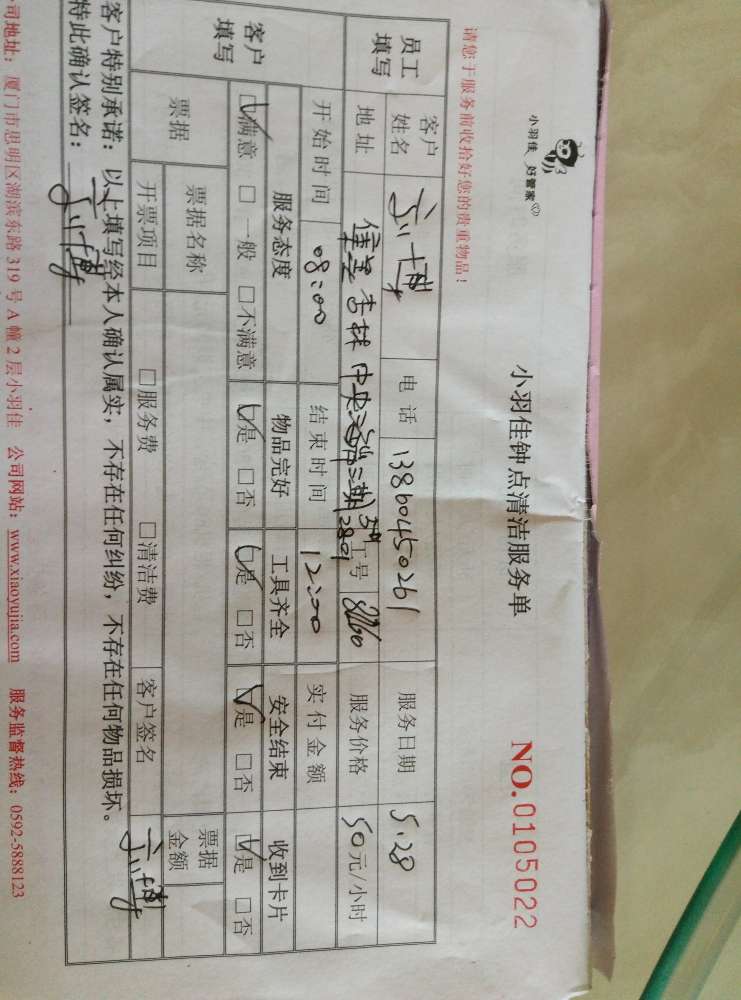 小羽佳 好管家
小羽佳钟点清洁服务单
NO.0105022
请您于服务前收拾好您的贵重物品！
员工填写 客户姓名 电话 13860450261 服务日期 5.28
地址 杏林 中央 二期 2801 工号 服务价格 50元/小时
开始时间 08:00 结束时间 12:00 实付金额
客户填写 服务态度 物品完好 工具齐全 安全结束 收到卡片
☑满意 □一般 □不满意 ☑是 □否 ☑是 □否 ☑是 □否 ☑是 □否
票据 票据名称 票据金额
开票项目 □服务费 □清洁费 客户签名
客户特别承诺：以上填写经本人确认属实，不存在任何纠纷，不存在任何物品损坏。
特此确认签名：
司地址：厦门市思明区湖滨东路319号A幢2层小羽佳 公司网站：www.xiaoyujia.com 服务监督热线：0592-5888123